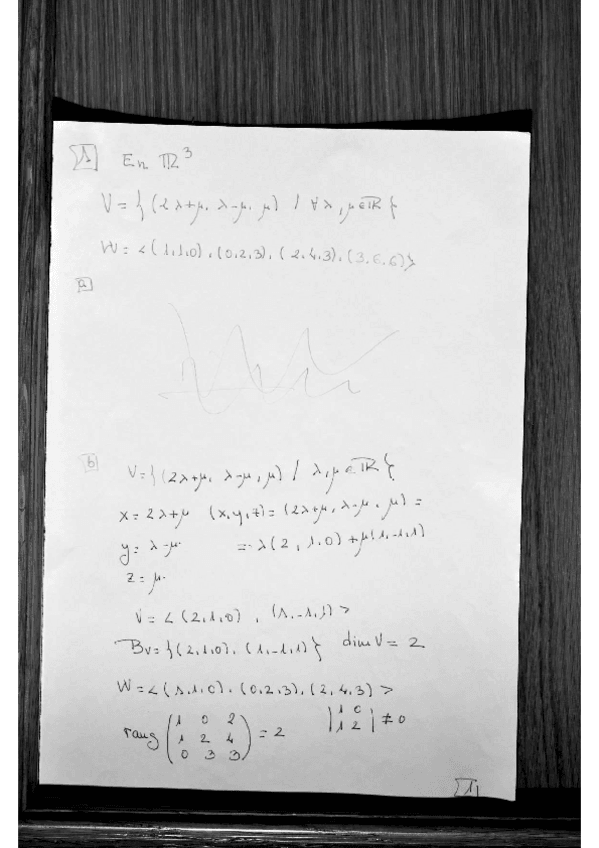 1 En ℝ³
V = { (2λ+μ, λ-μ, μ) / ∀ λ, μ ∈ ℝ }
W = < (1,1,0), (0,2,3), (2,4,3), (3,6,6) >
a
b V = { (2λ+μ, λ-μ, μ) / λ, μ ∈ ℝ }
x = 2λ+μ (x,y,z) = (2λ+μ, λ-μ, μ) =
y = λ-μ = λ(2,1,0) + μ(1,-1,1)
z = μ
V = < (2,1,0), (1,-1,1) >
Bv = { (2,1,0), (1,-1,1) } dim V = 2
W = < (1,1,0), (0,2,3), (2,4,3) >
rang ( 1 0 2 | 1 0 |
1 2 4 = 2 | 1 2 | ≠ 0
0 3 3 )
1